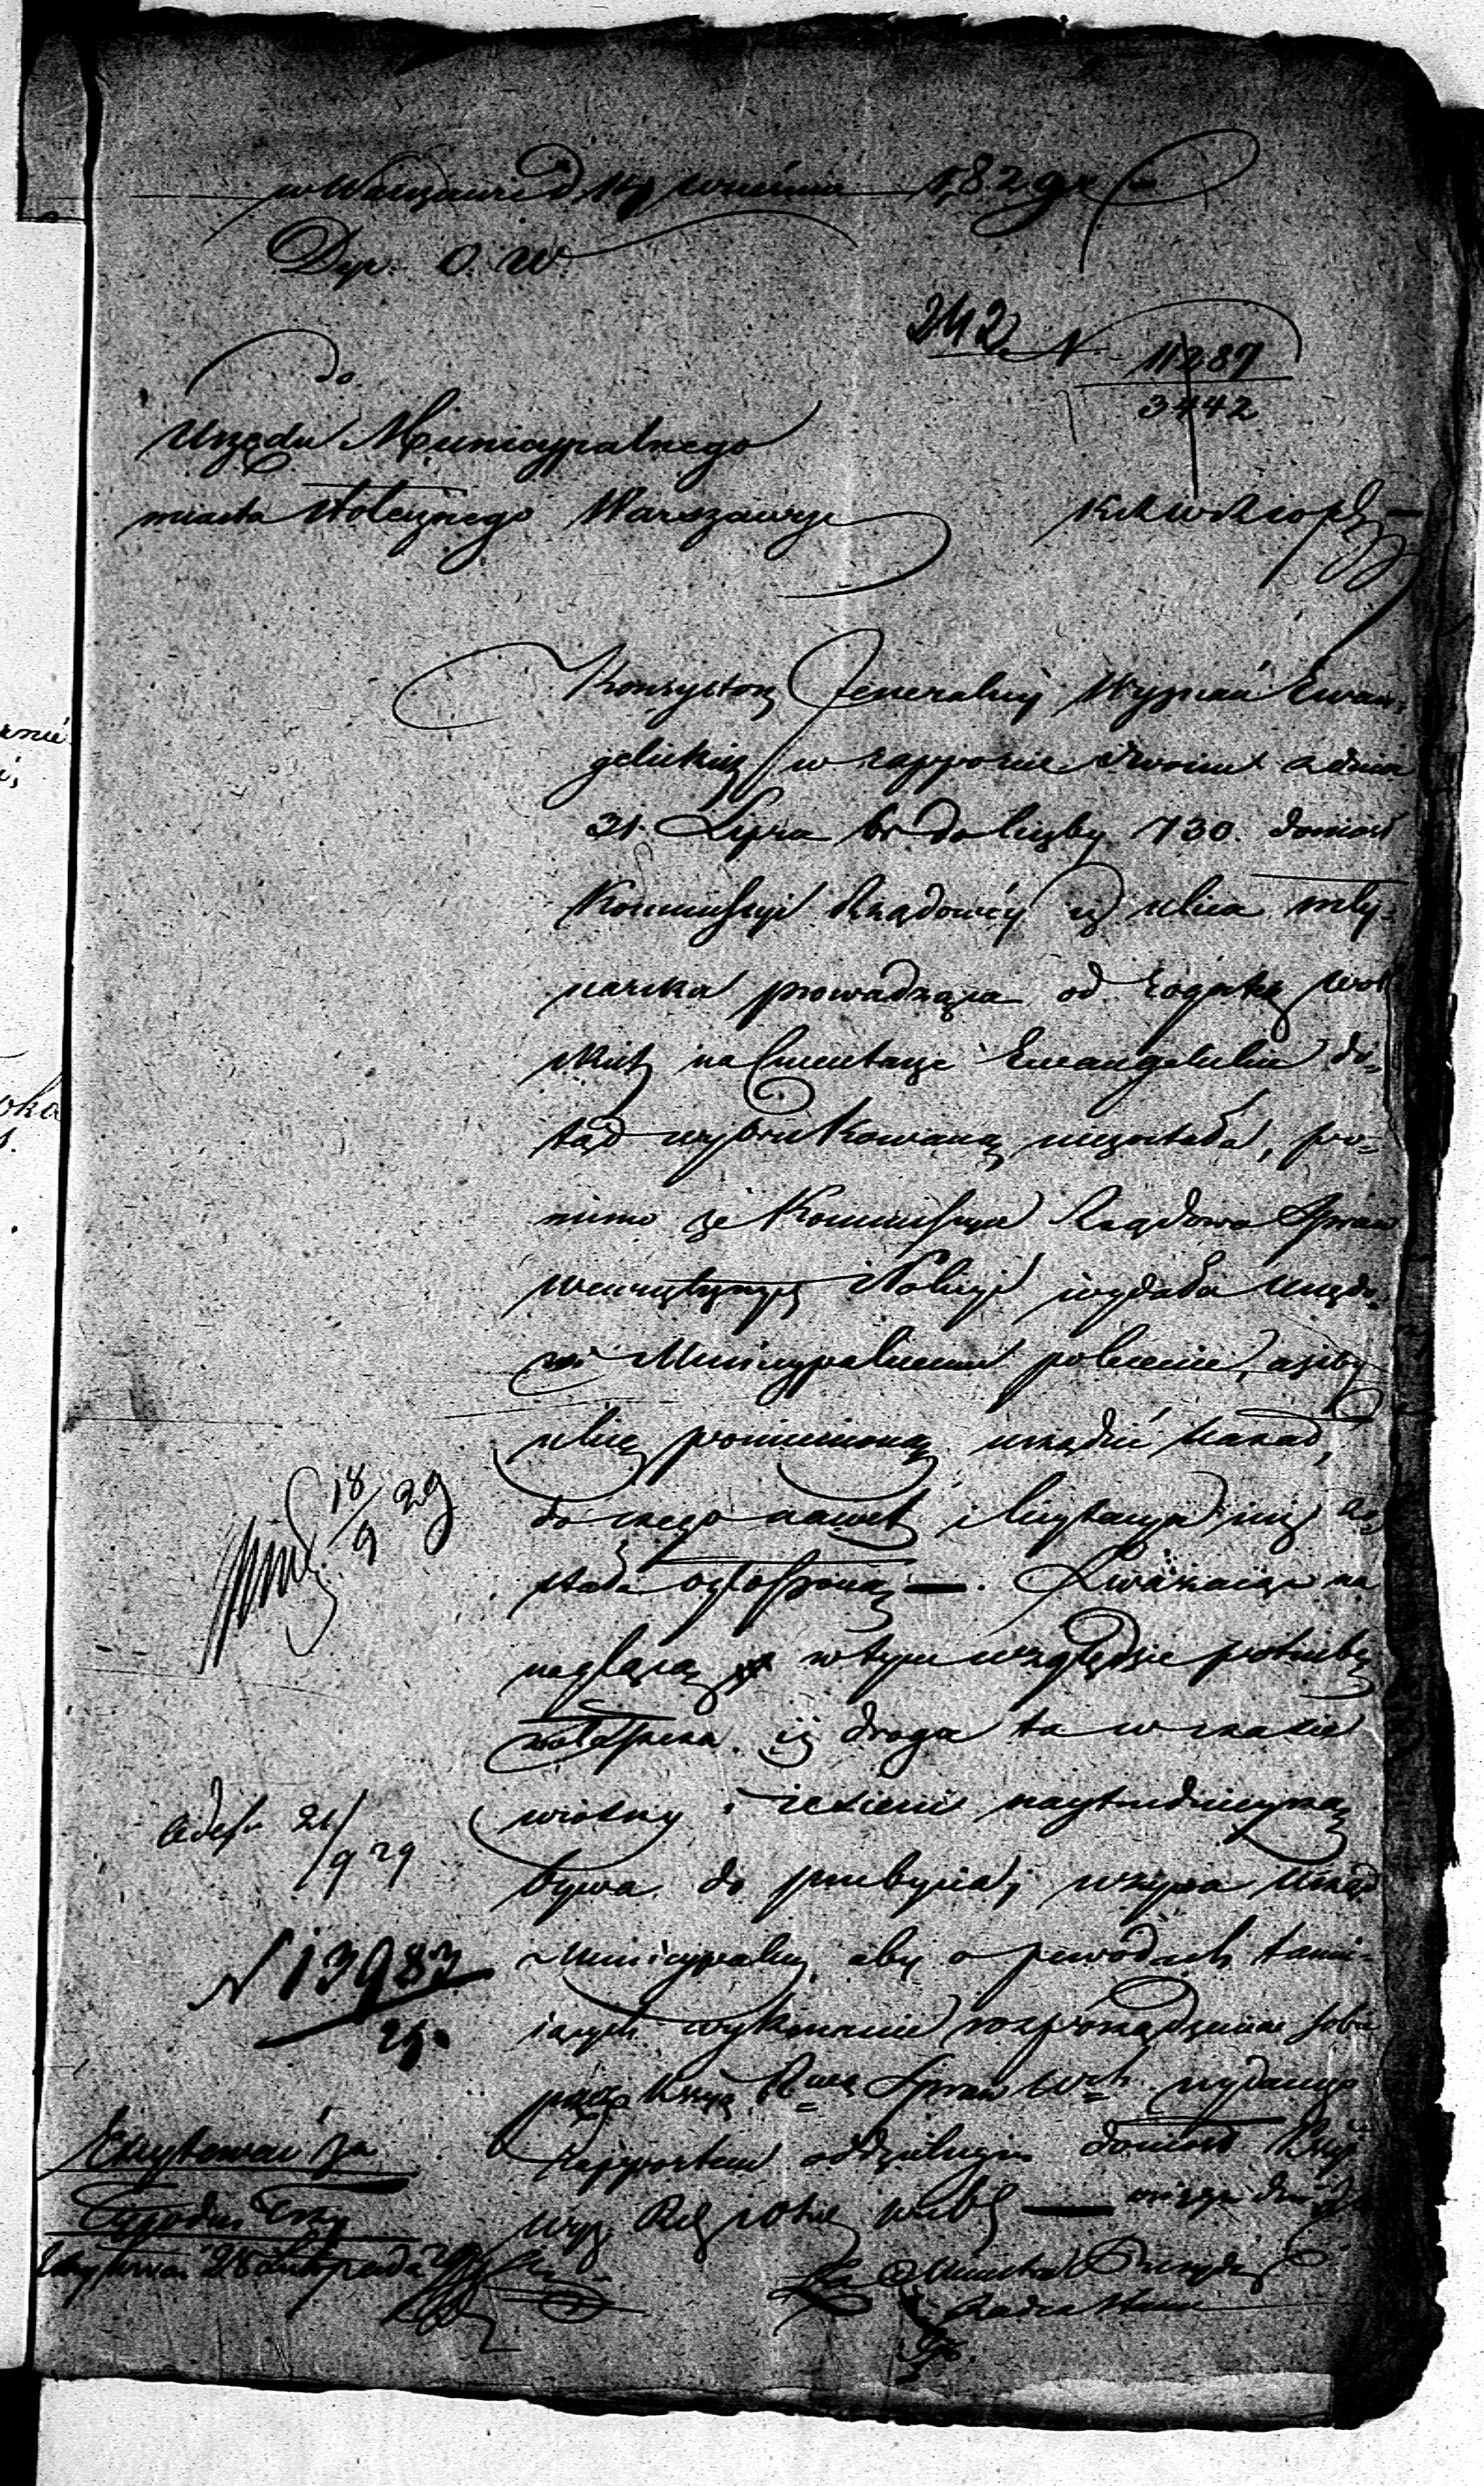 w Warszawie d. 14 września 1829 r
Dyr. O. W.
242 N. 11287
3442
Do
Urzędu Municypalnego
miasta stołecznego Warszawy
Konsystorz Jeneralny Wyznań Ewan-
gelickich w rapporcie swoim z dnia
31. Lipca br do liczby 730. doniósł
Kommissyi Rządowéy iż ulica mły-
narska prowadząca od rogatek wol-
skich na Cmentarze Ewangelickie do-
tąd wybrukowaną niezostała, po-
mimo że Kommissya Rządowa Spraw
wewnętrznych i Policyi wydała Urzędo-
wi Municypalnemu polecenie, ażeby
ulicę pomienioną urządzić kazał,
do czego nawet i licytacya iuż zo-
stała ogłoszoną —. Zważaiąc na
naglącą w tym względzie potrzebę
zwłaszcza iż droga ta w czasie
wiosny i iesieni naytrudnieyszą
bywa do przebycia; wzywa Urząd
Municypalny aby o powodach tamu-
iących wykonanie rozporządzenia sobie
przez Kssyą Rwą Spraw Wch wydanego
rapportem oddzielnym doniósł Kssyi
wyz. Rel. i Ośw. Publ —
Za Ministra Prezyd.
Radca Stanu
18/9 29
21/9 29
N 13983
25.
Excytować za
Tygodni Trzy
Excytowano 25 Listopada 29